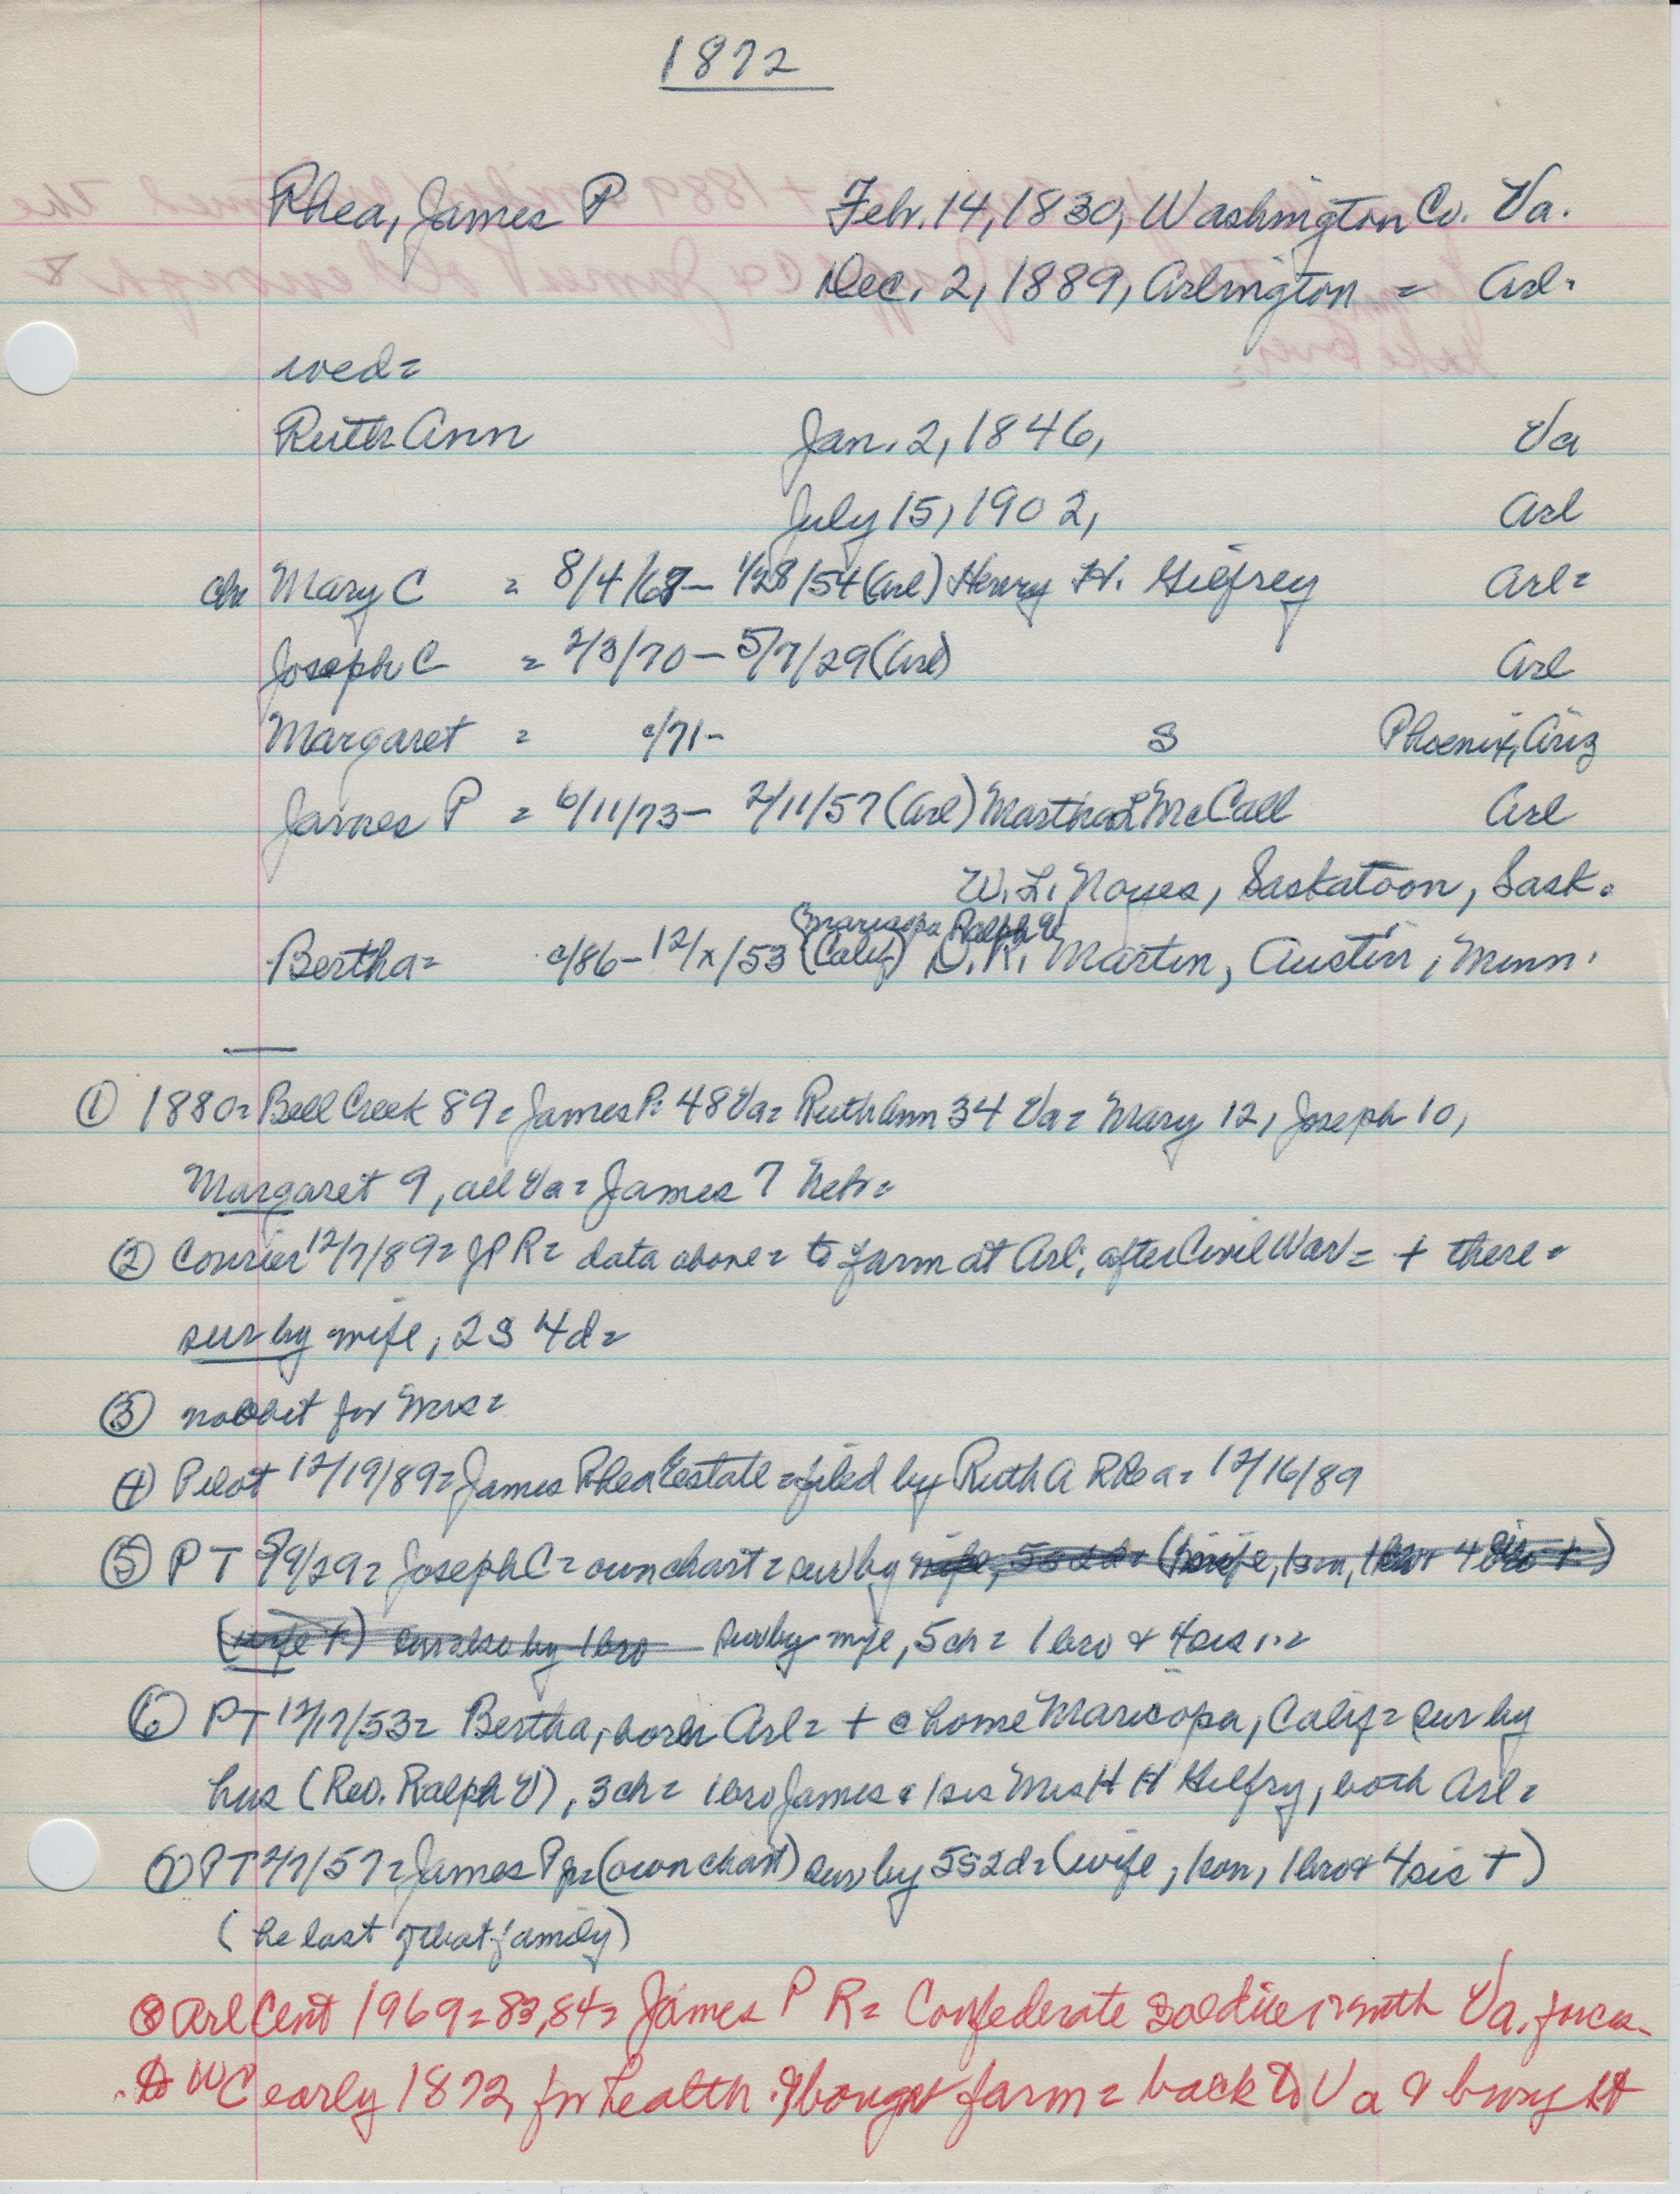 1872
Rhea, James P Feb. 14, 1830, Washington Co. Va.
Dec. 2, 1889, Arlington = Arl.
wed =
Ruth Ann Jan. 2, 1846, Va
July 15, 1902, Arl
ch Mary C = 8/4/68 - 1/28/54 (Arl) Henry H. Gilfrey Arl =
Joseph C = 2/3/70 - 5/7/29 (Arl) Arl
Margaret = c/71 - S Phoenix, Ariz
James P = 6/11/73 - 2/11/57 (Arl) Martha L McCall Arl
W. L. Noyes, Saskatoon, Sask.
(Maricopa Ralph W
Bertha = c/86 - 12/x/53 (Calif) D. R. Martin, Austin, Minn.
① 1880 = Bell Creek 89 = James P. 48 Va = Ruth Ann 34 Va = Mary 12, Joseph 10,
Margaret 9, all Va = James 7 Nebr =
② Courier 12/7/89 = JPR = data above = to farm at Arl. after Civil War = + there =
sur by wife, 2S 4d =
③ no obit for Mrs =
④ Pilot 12/19/89 = James Rhea Estate = filed by Ruth A Rhea = 12/16/89
⑤ PT 5/9/29 = Joseph C = own chart = sur by wife, (wife, 1 son, 1 bro + 4 +)
(wife +) by 1 bro sur by wife, 5 ch = 1 bro & 4 sis =
⑥ PT 12/17/53 = Bertha, born Arl = + @ home Maricopa, Calif = sur by
hus (Rev. Ralph W), 3 ch = 1 bro James & 1 sis Mrs H H Gilfry, both Arl =
⑦ PT 2/7/57 = James P = (own chart) sur by 5S 2d = (wife, 1 son, 1 bro & 4 sis +)
(he last of that family)
⑧ Arl Cent 1969 = 83, 84 = James P R = Confederate soldier with Va. forces =
to WC early 1872, for health & bought farm = back to Va & brought